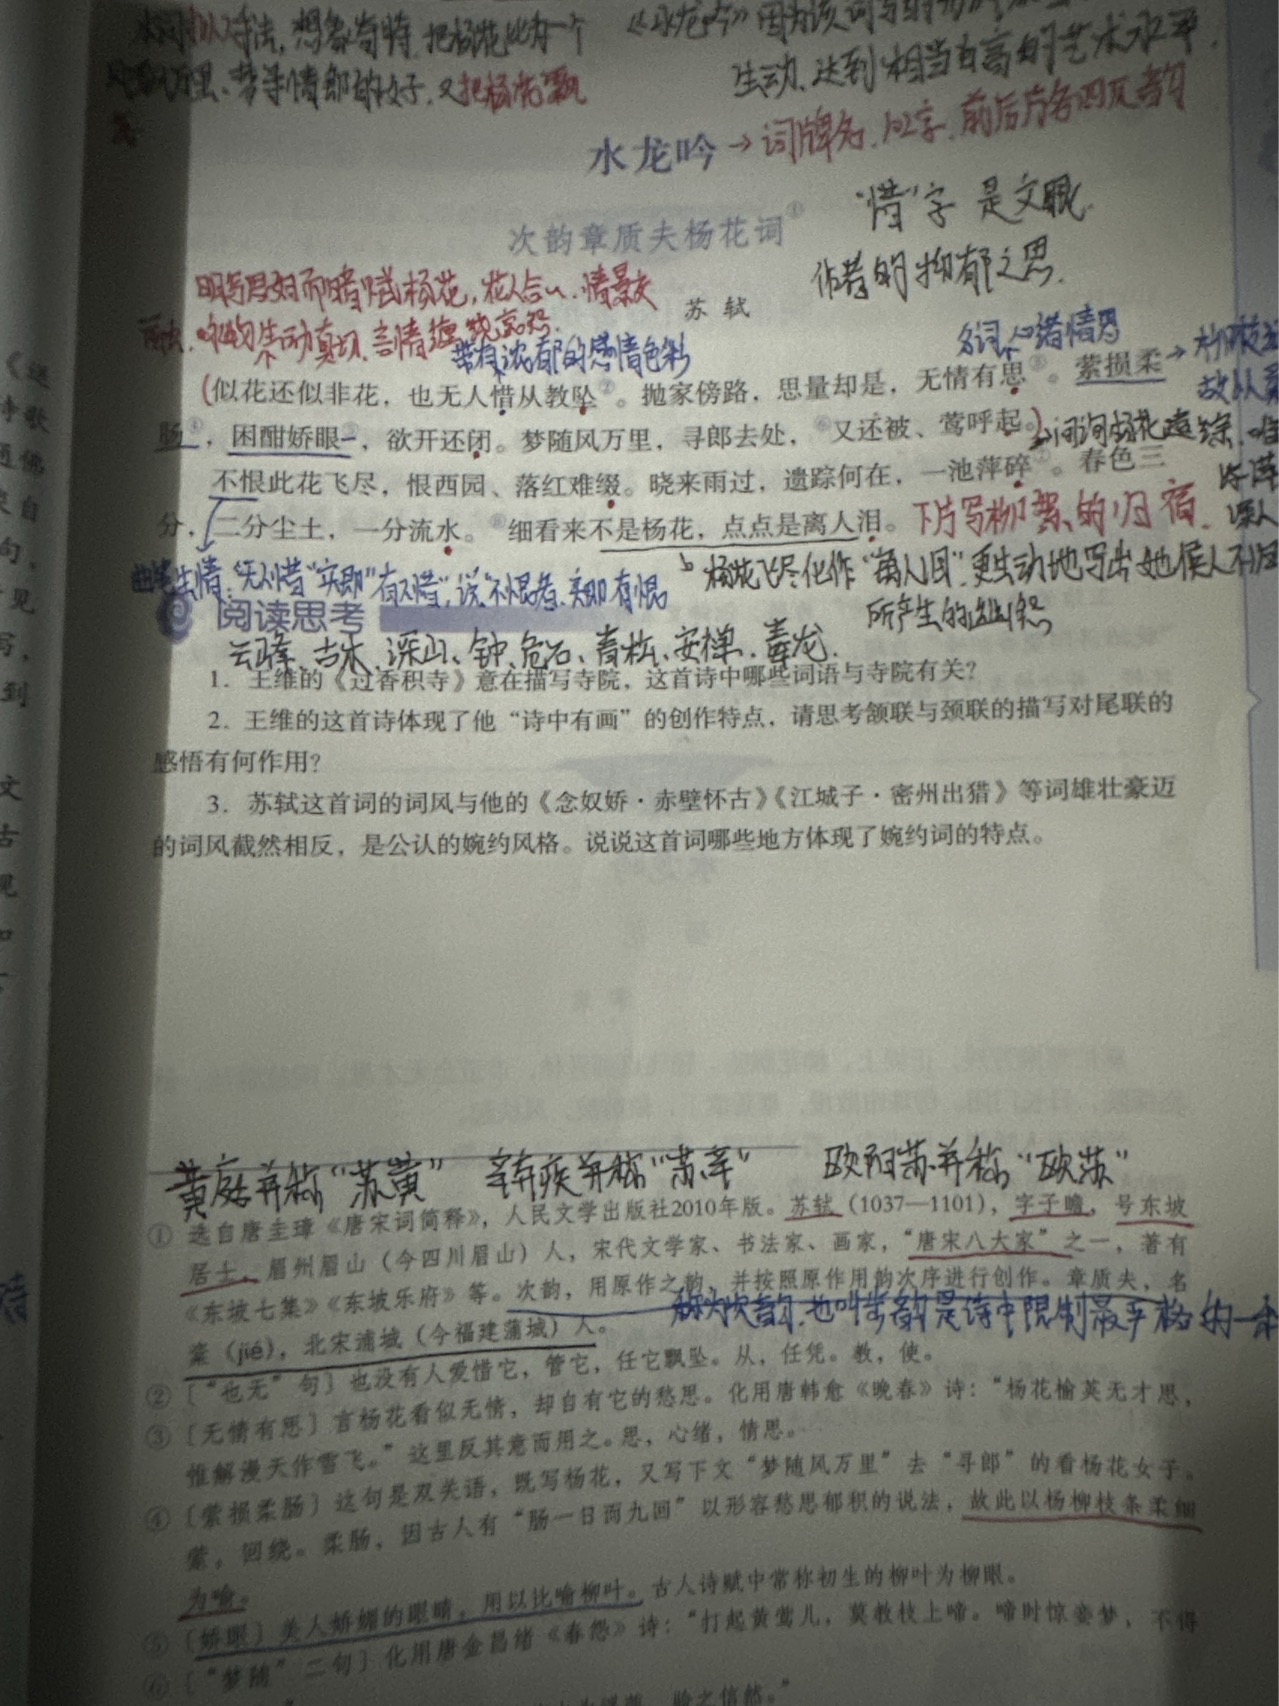 手法，想象奇特，把杨花比为一个
万里、梦寻情郎的女子，又把杨花飘
《水龙吟》因为该词写的
生动、达到相当高的艺术水平.
水龙吟→词牌名，102字，前后片各四仄韵
次韵章质夫杨花词①
“惜”字 是文眼.
作者的抑郁之思.
明写思妇而暗赋杨花，花人合一，情景交
苏 轼
融，咏物生动真切、言情缠绵哀怨.
带有浓郁的感情色彩
名词，心绪情思
(似花还似非花，也无人惜从教坠②。抛家傍路，思量却是，无情有思③。萦损柔→柳枝
肠④，困酣娇眼⑤，欲开还闭。梦随风万里，寻郎去处，⑥又还被、莺呼起。)
问询杨花遗踪
不恨此花飞尽，恨西园、落红难缀。晓来雨过，遗踪何在，一池萍碎⑦。春色三
分，二分尘土，一分流水。⑧细看来不是杨花，点点是离人泪。下片写柳絮的归宿.
曲笔生情：“无人惜”实即“有人惜”，说“不恨”者，实即有恨
杨花飞尽化作“离人泪”更生动地写出她候人不归
所产生的幽怨
阅读思考
云峰、古木、深山、钟、危石、青松、安禅、毒龙.
1. 王维的《过香积寺》意在描写寺院，这首诗中哪些词语与寺院有关？
2. 王维的这首诗体现了他“诗中有画”的创作特点，请思考颔联与颈联的描写对尾联的
感悟有何作用？
3. 苏轼这首词的词风与他的《念奴娇·赤壁怀古》《江城子·密州出猎》等词雄壮豪迈
的词风截然相反，是公认的婉约风格。说说这首词哪些地方体现了婉约词的特点。
黄庭并称“苏黄” 辛弃疾并称“苏辛” 欧阳苏并称“欧苏”
① 选自唐圭璋《唐宋词简释》，人民文学出版社2010年版。苏轼（1037—1101），字子瞻，号东坡
居士，眉州眉山（今四川眉山）人，宋代文学家、书法家、画家，“唐宋八大家”之一，著有
《东坡七集》《东坡乐府》等。次韵，用原作之韵，并按照原作用韵次序进行创作。章质夫，名
称为次韵，也叫步韵是诗中限制最严格的一
楶（jié），北宋浦城（今福建蒲城）人。
② 〔“也无”句〕也没有人爱惜它，管它，任它飘坠。从，任凭。教，使。
③ 〔无情有思〕言杨花看似无情，却自有它的愁思。化用唐韩愈《晚春》诗：“杨花榆荚无才思，
惟解漫天作雪飞。”这里反其意而用之。思，心绪，情思。
④ 〔萦损柔肠〕这句是双关语，既写杨花，又写下文“梦随风万里”去“寻郎”的看杨花女子。
萦，回绕。柔肠，因古人有“肠一日而九回”以形容愁思郁积的说法，故此以杨柳枝条柔细
为喻。
⑤ 〔娇眼〕美人娇媚的眼睛，用以比喻柳叶。古人诗赋中常称初生的柳叶为柳眼。
⑥ 〔“梦随”二句〕化用唐金昌绪《春怨》诗：“打起黄莺儿，莫教枝上啼。啼时惊妾梦，不得
验之信然。”